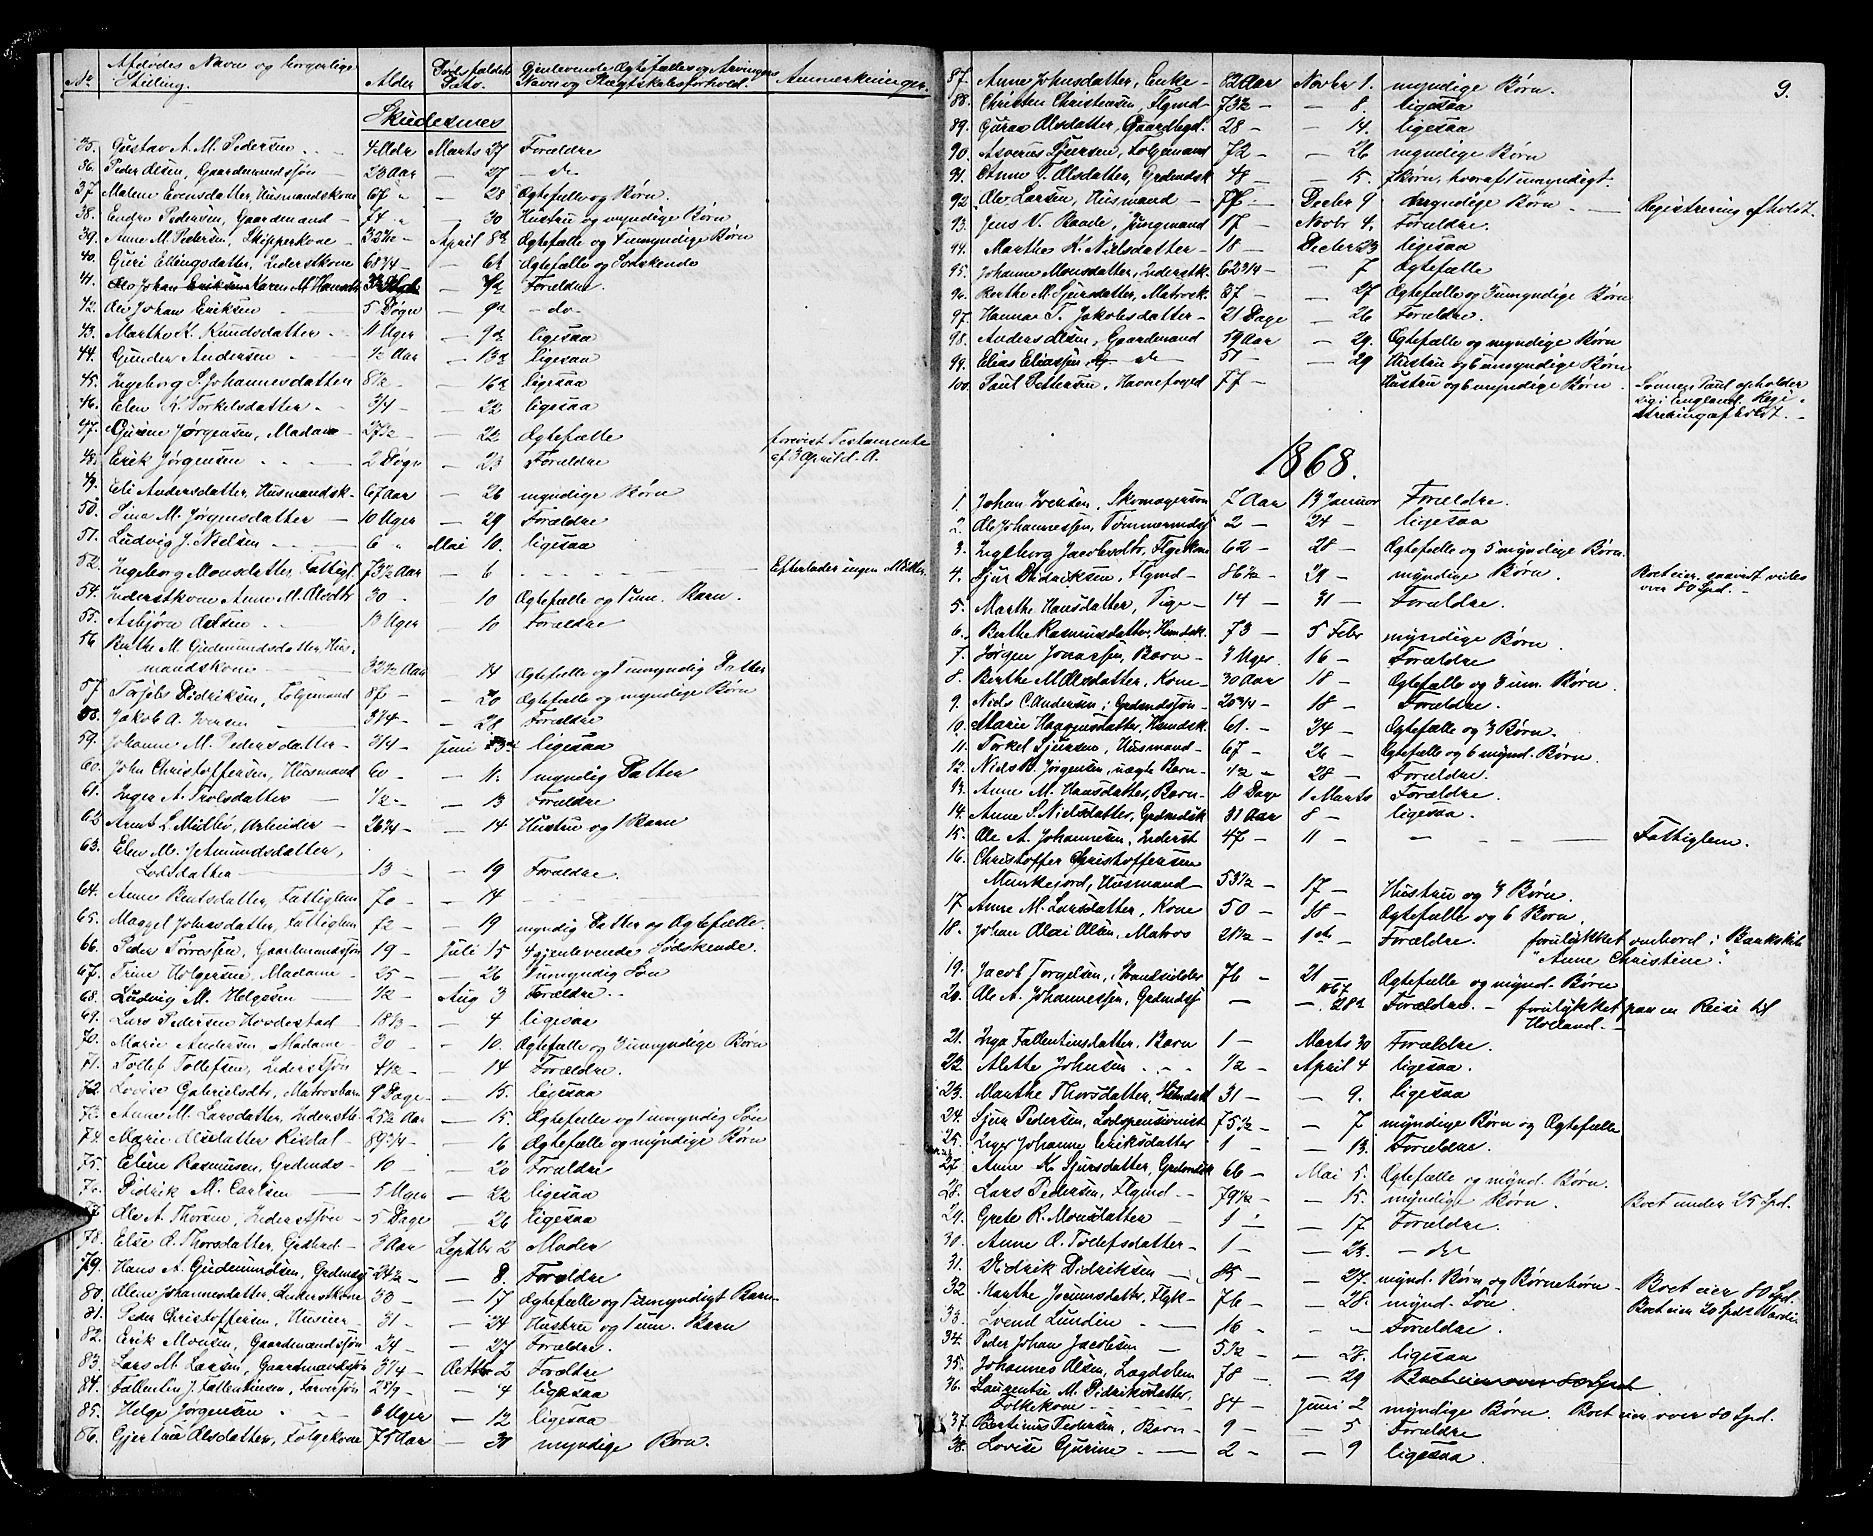 No Afdødes Navn og borgerlige Stilling. Alder Dødsfaldets Dato. Gjenlevende Ægtefælles og Arvingers Navn og Slægtskabsforhold. Anmærkninger.
Skudesnes
35. Gustav A. M. Pedersen 4 Mdr Marts 27 Forældre
36. Peder Olsen, Gaardmandssøn 23 Aar — 27 — do
37. Malene Evensdatter, Husmandskone 67 " — 28 Ægtefælle og Børn.
38. Endre Pedersen, Gaardmand — 74 " — 30 Hustru og myndige Børn
39. Anne M. Pedersen, Skipperkone — 32½ — April 8de Ægtefælle og 1 umyndige Børn
40. Guri Ellingsdatter, Inderstkone 68¾ — — 6te Ægtefælle og Sødskende
41. Ole Johan Eriksen Karen M. Hansdtr — Forældre.
42. Ole Johan Eriksen 5 Døgn — 9de — do —
43. Marthe K. Knudsdatter 11 Uger — 9de ligesaa
44. Gunder Andersen ½ Aar — 13de ligesaa
45. Ingeborg S. Johannesdatter 8½ — — 16de ligesaa
46. Elen K. Torkelsdatter 3/4 — — 22 ligesaa
47. Gurine Jørgensen, Madam — 27½ — — 22 Ægtefælle forevist Testamente
48. Erik Jørgensen 2 Døgn — 23 Forældre af 3 April d. A.
49. Eli Andersdatter, Husmandsk — 67 Aar — 26 myndige Børn
50. Sina M. Jørgensdatter — 10 Uger — 29 Forældre
51. Ludvig J. Nielsen 6 " Mai 10. ligesaa
52. Ingeborg Monsdatter, Fattigl. 73½ Aar — 6 Efterlader ingen Midler.
54. Inderstkone Anne M. Olsdtr 30 — — 10 Ægtefælle og 1 um. Barn.
55. Asbjørn Olsen 13 Uger — 10 Forældre.
56 Berthe M. Gudmundsdatter, Hus-
mandskone 32½ Aar — 14 Ægtefælle og 1 umyndig Datter
57. Tosjeb Didriksen, Folgemand 87 — — 20 Ægtefælle og myndige Børn
58. Jakob A. Iversen 3¼ — — 28 Forældre
59. Johanne M. Pedersdatter — 3/4 — Juni ligesaa
60. John Christoffersen, Husmand 60 — — 11. 1 myndig Datter
61. Inger A. Trolsdatter ½ — — 13 Forældre
62 Arnt L. Mutbø, Arbeider — 26¼ — — 14 Hustru og 1 Barn
63. Elen M. Amundsdatter,
Lodsdatter — 13 — — 19 Forældre.
64. Anne Bentsdatter, Fattiglem 70 — — 14
65. Maggel Johnsdatter, Fattiglem 72 — — 19 myndig Datter og Ægtefælle.
66. Peder Torresen, Gaardmandssøn 19 — Juli 15 4 gjenlevende Sødskende.
67. Trine Holgersen, Madame — 25 — — 26 1 umyndig Søn
68. Ludvig M. Helgesen ½ — Aug 3 Forældre
69. Lars Pedersen Hovdestad 18⅓ — — 4 ligesaa
70. Marie Andersen, Madame — 30 — — 10. Ægtefælle og 3 umyndige Børn
71. Tollef Tollefsen, Inderstsøn 4½ — — 14 Forældre.
72. Lovise Gabrielsdtr, Matrosbarn 9 Dage — 15. ligesaa
73. Anne M. Larsdatter, Inderstk 25½ Aar — 15. Ægtefælle og 1 umyndig Søn
74. Marie Olsdatter Risdal — 89¾ — — 16 Ægtefælle og myndige Børn
75. Eline Rasmusen, Grdmds — 10 — — 20 Forældre
76. Didrik M. Carlsen 5 Uger — 22 ligesaa
77. Ole A. Thorsen, Inderstsøn — 5 Dage — 26 ligesaa
78. Else O. Thorsdatter, 3 Aar Septbr 2 Moder
79. Hans A. Gudmundsen, Grdmdsø 24½ — — 8. Forældre
80. Olene Johannesdatter, Inderstkone 33 — — 17 Ægtefælle og 1 umyndigt Barn
81. Peder Christoffersen, Husmn 31 — — 24 Hustru og 1 um. Barn
82. Erik Monsen, Gaardmandssøn 24 — — 27 Forældre.
83. Lars M. Larsen, Gaardmandssøn 3¼ — Octbr 2 Forældre
84. Fallentin J. Fallentinsen, Farversøn — 4 ligesaa
85. Helge Jørgensen 6 Uger — 12 ligesaa
86. Gjertrua Olsdatter, Folgekone 75 Aar — 30 myndige Børn.
9.
87. Anne Johnsdatter, Enke — 82 Aar Novbr 1. myndige Børn.
88. Christen Christensen, Flgmd — 73½ — — 8. ligesaa
89. Guraa Olsdatter, 28 — — 14. ligesaa
90. Asverus Sjursen, Folgemand 72 — — 26 myndige Børn
91. Anne T. Olsdatter, Grdmdsk 48 — — 5. 7 Børn, hvoraf 1 umyndigt.
92. Ole Larsen, Husmand — 77 — Decbr 9 myndige Børn — Registrering afholdt.
93. Jens V. Baade, Jungmand 17 — Novbr 4. Forældre.
94. Marthe K. Nielsdatter — 18 — Decbr 23 ligesaa
95. Johanne Monsdatter, Inderstk. 62¾ — — 7 Ægtefælle
96. Berthe M. Sjursdatter, Matrosk. 37 — — 27 Ægtefælle og 3 umyndige Børn
97. Hanna T. Jakobsdatter — 21 Dage — 26 Forældre.
98. Anders Olsen, Gaardmand 59 Aar — 29. Ægtefælle og myndige Børn
99. Elias Eliassen, do 51 — — 29 Hustru og 6 umyndige Børn
100. Paul Pettersen, Havnefoged 77 — Hustru og 6 myndige Børn. Sønnen Paul opholder
sig i England. Regi-
strering afholdt. —
1868.
1. Johan Iversen, Skomagersøn 7 Aar 19 Januar Forældre.
2. Ole Johannessen, Tømmermds 2 — 24 — ligesaa
3. Ingeborg Jacobsdtr, Flgkone 62 — 28 — Ægtefælle og 5 myndige Børn.
4. Sjur Didriksen, Flgmd — 86½ — 29 — myndige Børn. Boet eier saavidt vides
over 80 Spd. —
5. Marthe Hansdatter, Pige — 14 — 31 — Forældre.
6. Berthe Rasmusdatter, Hsmdsk. 73 — 5 Febr myndige Børn.
7. Jørgen Jonassen, Barn — 3 Uger 16 — Forældre
8. Berthe M. Olsdatter, Kone — 30 Aar 18 — Ægtefælle og 3 um. Børn.
9. Niels C. Andersen, Grdmdssøn — 20¾ — 18 — Forældre.
10. Marie Haggensdatter, Hsmdsk. 61. — 24 — Ægtefælle og 3 Børn.
11. Torkel Sjursen, Husmand — 67 — 26 — Ægtefælle og 6 mynd. Børn.
12. Niels B. Jørgensen, uægte Barn — ½ — 28 — Forældre.
13. Anne M. Hansdatter, Barn — 11 Dage 1 Marts Forældre.
14. Anne S. Nielsdatter, Grdmdsk 31 Aar 8 — ligesaa.
15. Ole A. Johannesen, Inderst 47 — 11 — Fattiglem.
16. Christoffer Christoffersen
Munkejord, Husmand — 53½ — 17 — Hustru og 4 Børn.
17 Anne M. Larsdatter, Kone 50 — 18 — Ægtefælle og 6 Børn.
18. Johan Olai Olsen, Matros 21½ — 1ste — Forældre. forulykket ombord i Barkskib
"Anne Christine".
19. Jacob Torgelsen, Strandsidder 76 — 21 Ægtefælle og mynd. Børn
20. Ole A. Johannessen, Grdmdssø — — 28de Forældre. — forulykket paa en Reise til
Holland. —
21. Inga Fallentinsdatter, Barn 1 — Marts 30 Forældre.
22. Alette Johnsen ½ — April 4 ligesaa.
23. Marthe Thorsdatter, Hsmdsk 31 — — 9. ligesaa
24. Sjur Pedersen, Lodspensionist 75½ — — 7 myndige Børn og Ægtefælle
25. Inger Johanne Eriksdatter 1 — — 13. Forældre.
27. Anne K. Sjursdatter, Grdmdsk 66 — Mai 5. Ægtefælle og mynd. Børn.
28. Lars Pedersen, Flgmd. — 79½ — — 15. myndige Børn. Boet under 25 Spd.
29. Grete R. Monsdatter 1 — — 17. Forældre.
30. Anne O. Tollefsdatter — 1 — — 23. — do
31. Didrik Didriksen — 85 — — 27. mynd. Børn og Børnebørn — Boet eier 80 Spd.
32 Marthe Joeimsdatter, Flgk — 76 — — 28. mynd. Søn Boet eier 20 Spds Værdie
33. Svend Lundin 16 — Forældre.
34. Peder Johan Jacobsen 5½ — — 28. ligesaa
35. Johannes Olsen, Lægdslem 78 — — 29 Boet eier over 80 Spd
36. Laurentse M. Didriksdatter,
Folkekone 84 — Juni 2 myndige Børn. Boet eier over 80 Spd.
37. Bertinus Pedersen, Barn — 9 — — 5 Forældre
38. Lovise Gurine — 2 — — 9 ligesaa.